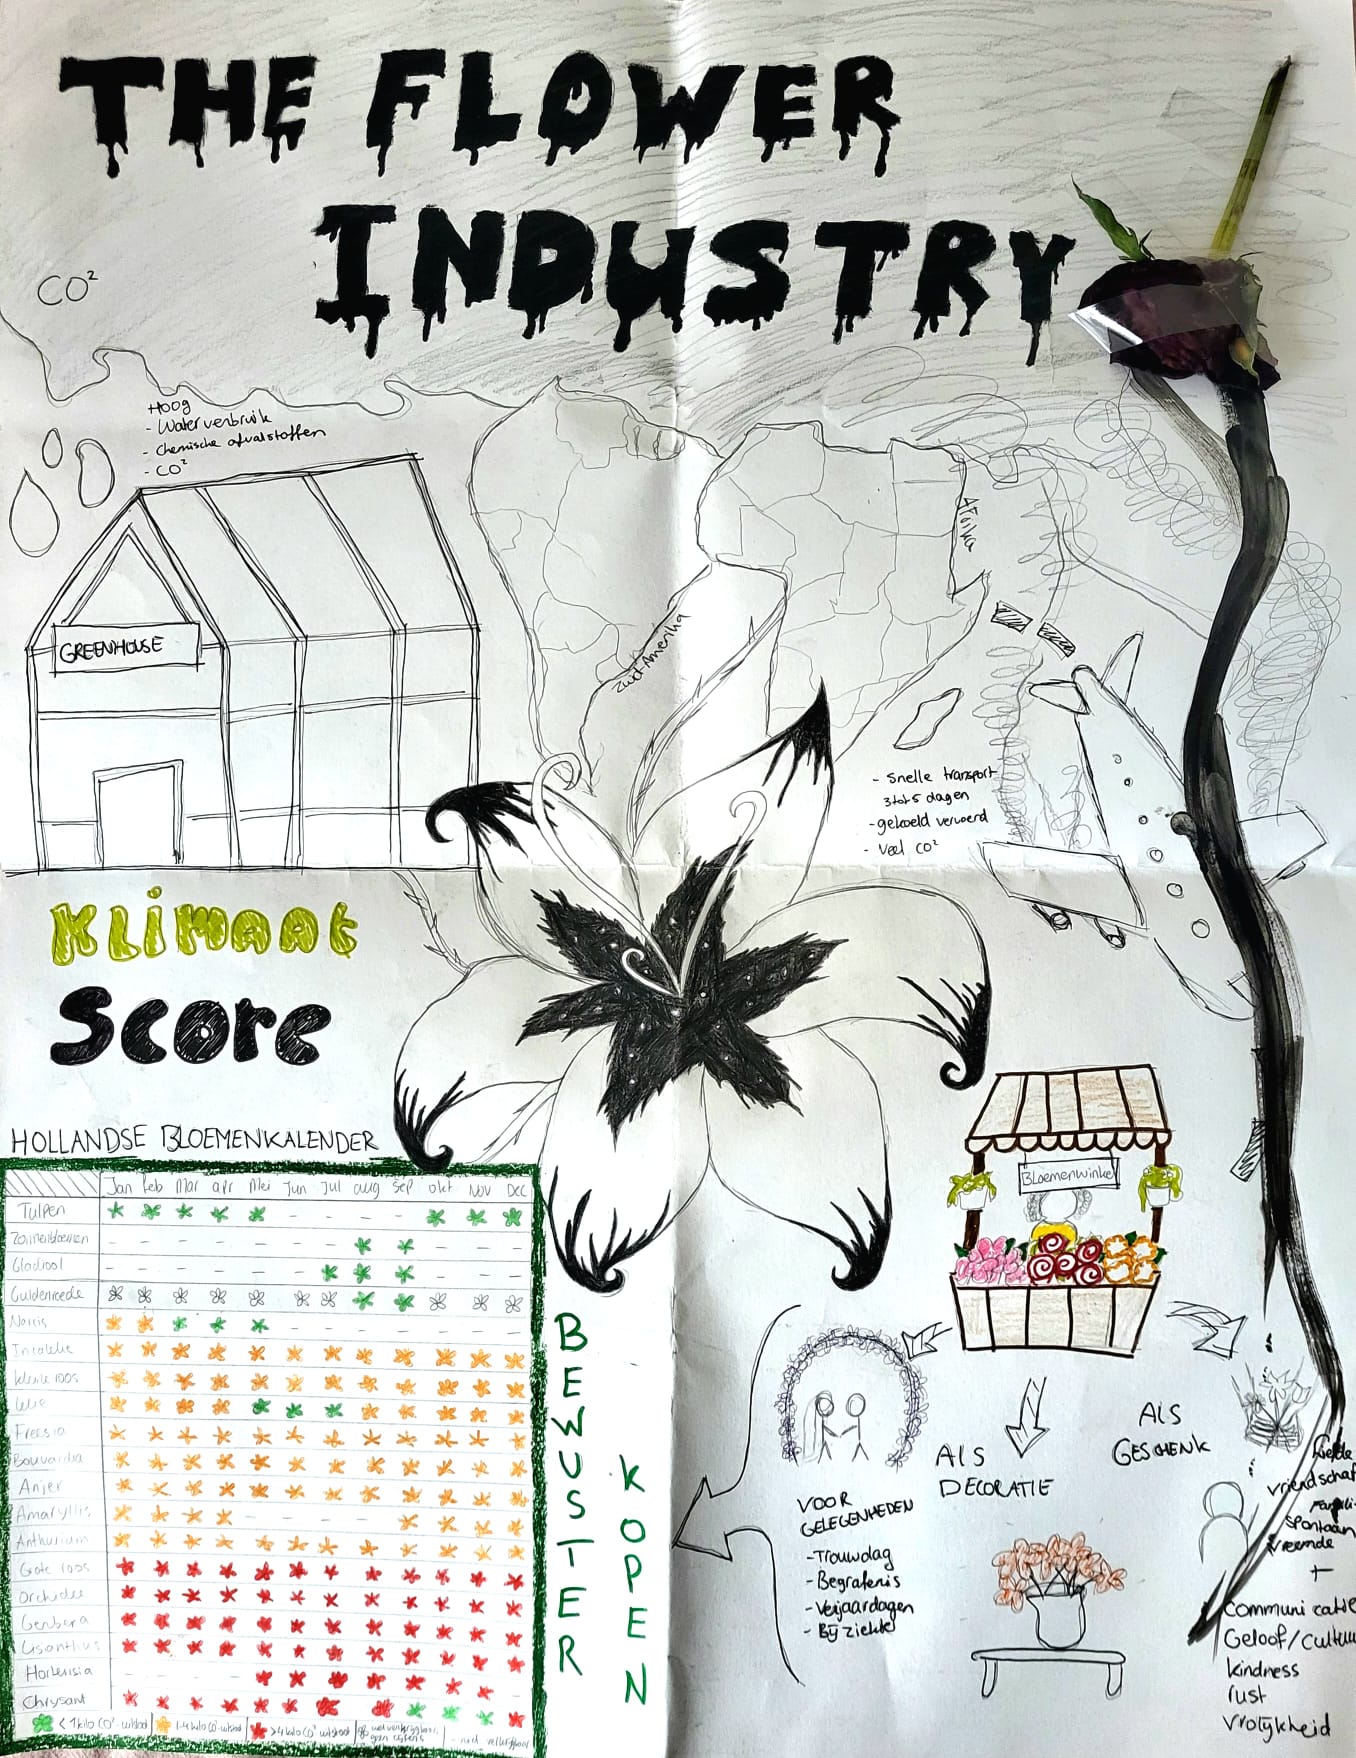 THE FLOWER
INDUSTRY
CO²
Hoog
- Waterverbruik
- Chemische afvalstoffen
- CO²
GREENHOUSE
Zuid-Amerika
Afrika
- Snelle transport
3 tot 5 dagen
- gekoeld vervoerd
- Veel CO²
KLIMAAT
SCORE
HOLLANDSE BLOEMENKALENDER
Jan Feb Mar apr Mei Jun Jul aug Sep okt Nov Dec
Tulpen
Zonnenbloemen
Gladiool
Guldenroede
Narcis
Kleine roos
Lelie
Freesia
Bouvardia
Anjer
Amaryllis
Anthurium
Grote roos
Orchidee
Gerbera
Lisianthus
Hortensia
Chrysant
< 1 kilo CO² uitstoot
1-4 kilo CO² uitstoot
> 4 kilo CO² uitstoot
BEWUSTER
KOPEN
Bloemenwinkel
ALS
GESCHENK
ALS
DECORATIE
VOOR
GELEGENHEDEN
- Trouwdag
- Begrafenis
- Verjaardagen
- Bij ziekte
liefde
vriendschap
Familie
spontaan
vreemde
+
Communicatie
Geloof/Cultuur
kindness
rust
vrolijkheid